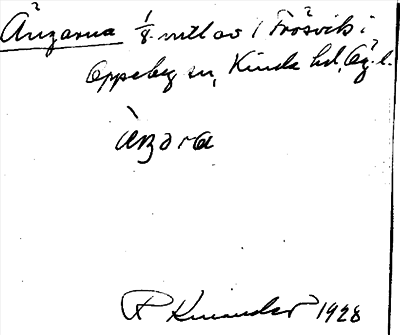 Ängarna 1/8 mtl av 1 Frösvik i
Oppeby sn, Kinda hd, Ög. l.
àŋɜrɑ
R Kinander 1928